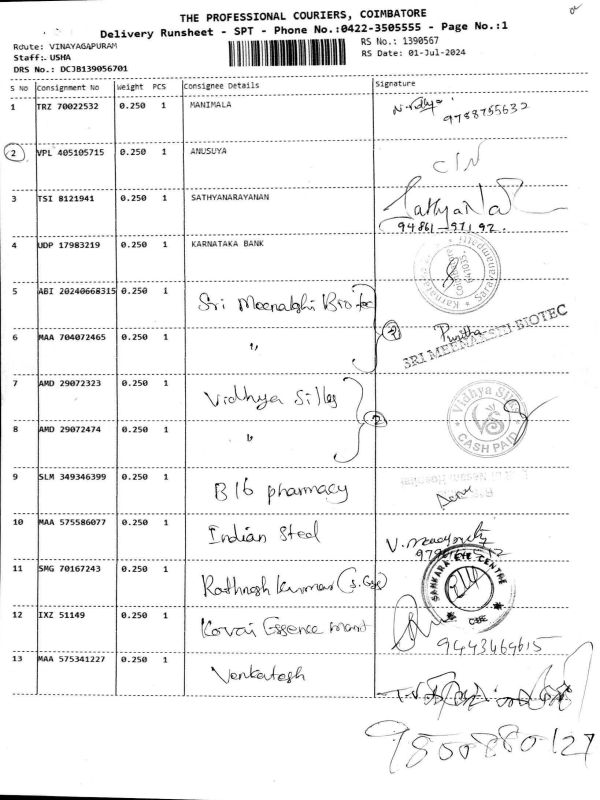 THE PROFESSIONAL COURIERS, COIMBATORE
Delivery Runsheet - SPT - Phone No.:0422-3505555 - Page No.:1
Route: VINAYAGAPURAM
RS No.: 1390567
Staff: USHA
RS Date: 01-Jul-2024
DRS No.: DCJB139056701
S No Consignment No Weight PCS Consignee Details Signature
1 TRZ 70022532 0.250 1 MANIMALA
9788755632
2 VPL 405105715 0.250 1 ANUSUYA
3 TSI 8121941 0.250 1 SATHYANARAYANAN
94861-97192.
4 UDP 17983219 0.250 1 KARNATAKA BANK
5 ABI 20240668315 0.250 1 Sri Meenatchi Bio Tec
6 MAA 704072465 0.250 1 " Punitha
SRI MEENAKSHI BIOTEC
7 AMD 29072323 0.250 1 Vidhya Silks
Vidhya Silks
VS
CASH PAID
8 AMD 29072474 0.250 1 "
9 SLM 349346399 0.250 1 B16 pharmacy
10 MAA 575586077 0.250 1 Indian Steel
11 SMG 70167243 0.250 1 Rathnesh Kumar
SANKARA EYE CENTRE
CBE
12 IXZ 51149 0.250 1 Kovai Essence mart
9443464615
13 MAA 575341227 0.250 1 Venkatesh
9500880127